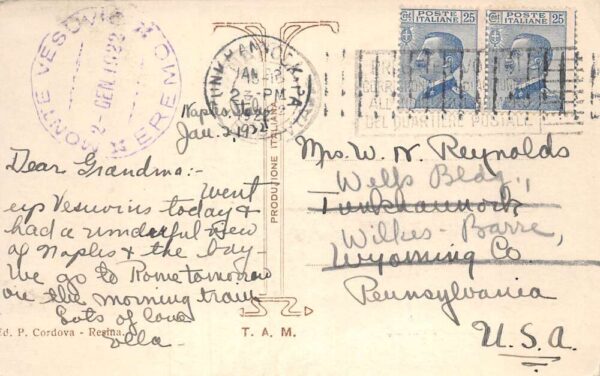 MONTE VESUVIO
EREMO
2-GEN.1922
TUNKHANNOCK, PA.
JAN
2-PM
1922
POSTE ITALIANE
25
POSTE ITALIANE
25
Naples, Italy
Jan. 2, 1922
Dear Grandma:-
Went
up Vesuvius today &
had a wonderful view
of Naples & the bay-
We go to Rome tomorrow
on the morning train-
Lots of love
Ella-
Mrs. W. N. Reynolds
Wells Bldg.,
Tunkhannock
Wilkes-Barre,
Wyoming Co
Pennsylvania
U.S.A.
PRODUZIONE ITALIANA
Ed. P. Cordova - Resina.
T. A. M.